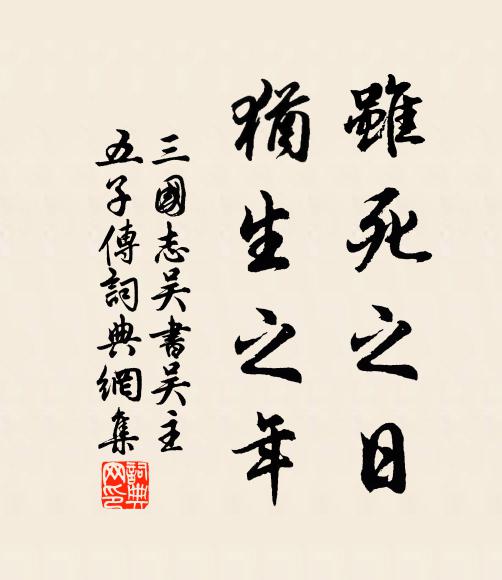 雖死之日
猶生之年
三國志吴書吴主
五子傳詞典網集
詞典
网印